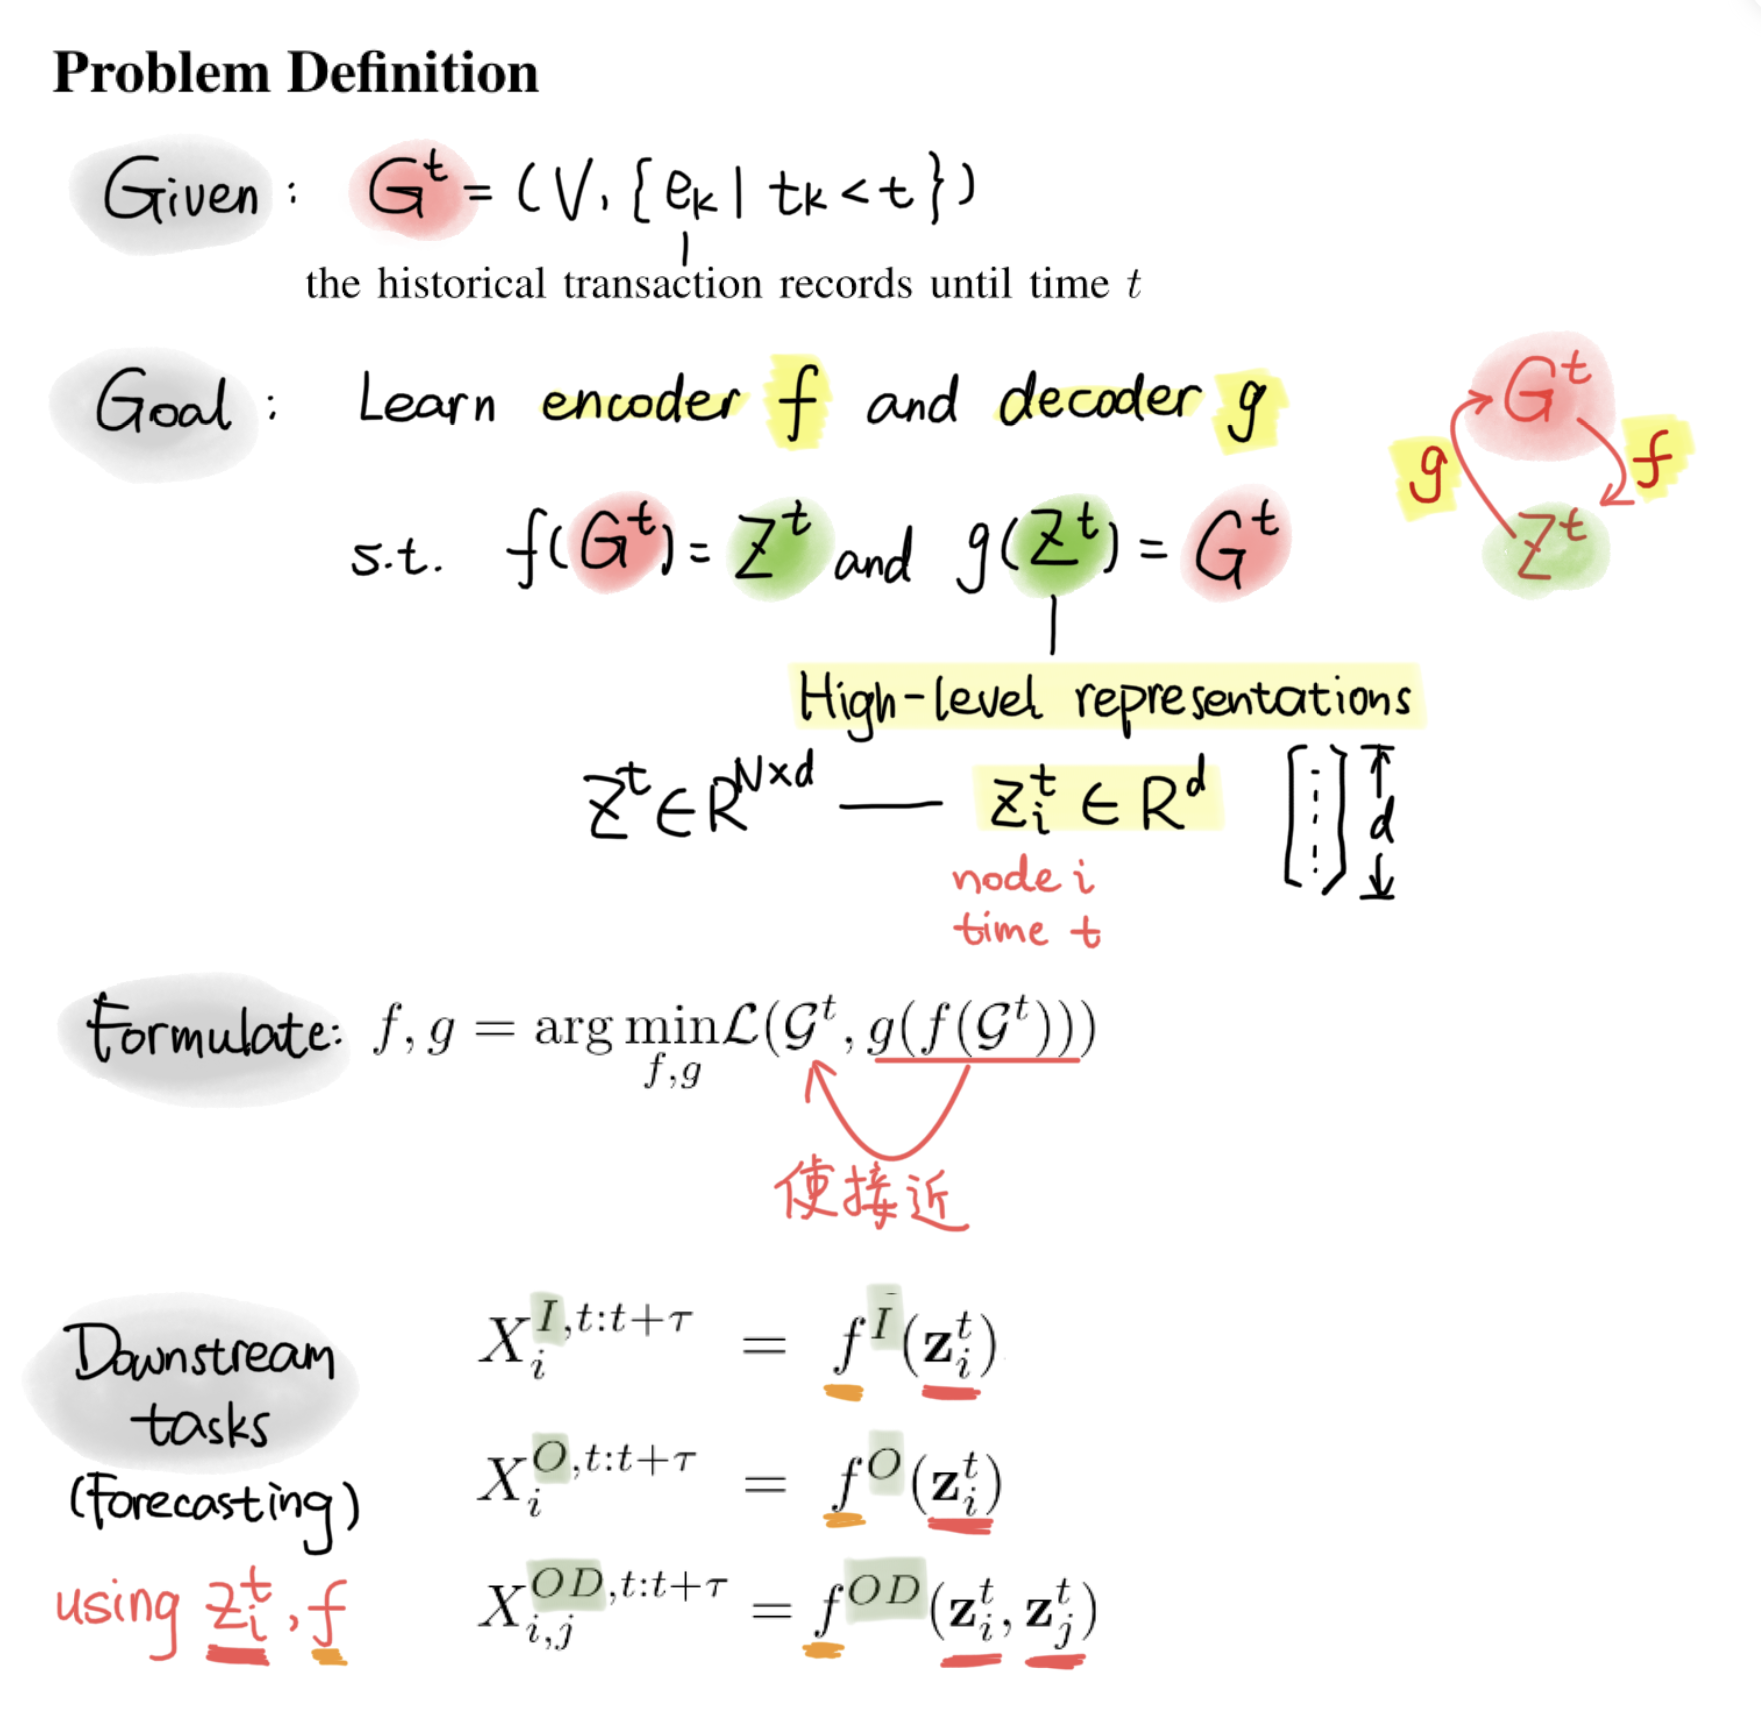 Problem Definition
Given : G^t = (V, {e_k | t_k < t})
the historical transaction records until time t
Goal : Learn encoder f and decoder g
s.t. f(G^t) = Z^t and g(Z^t) = G^t
G^t
g f
Z^t
High-level representations
Z^t ∈ R^{N×d} — z_i^t ∈ R^d [⋮] d
node i
time t
Formulate: f, g = arg min_{f,g} ℒ(𝒢^t, g(f(𝒢^t)))
使接近
Downstream
tasks
(Forecasting)
using z_i^t, f
X_i^{I,t:t+τ} = f^I(z_i^t)
X_i^{O,t:t+τ} = f^O(z_i^t)
X_{i,j}^{OD,t:t+τ} = f^{OD}(z_i^t, z_j^t)